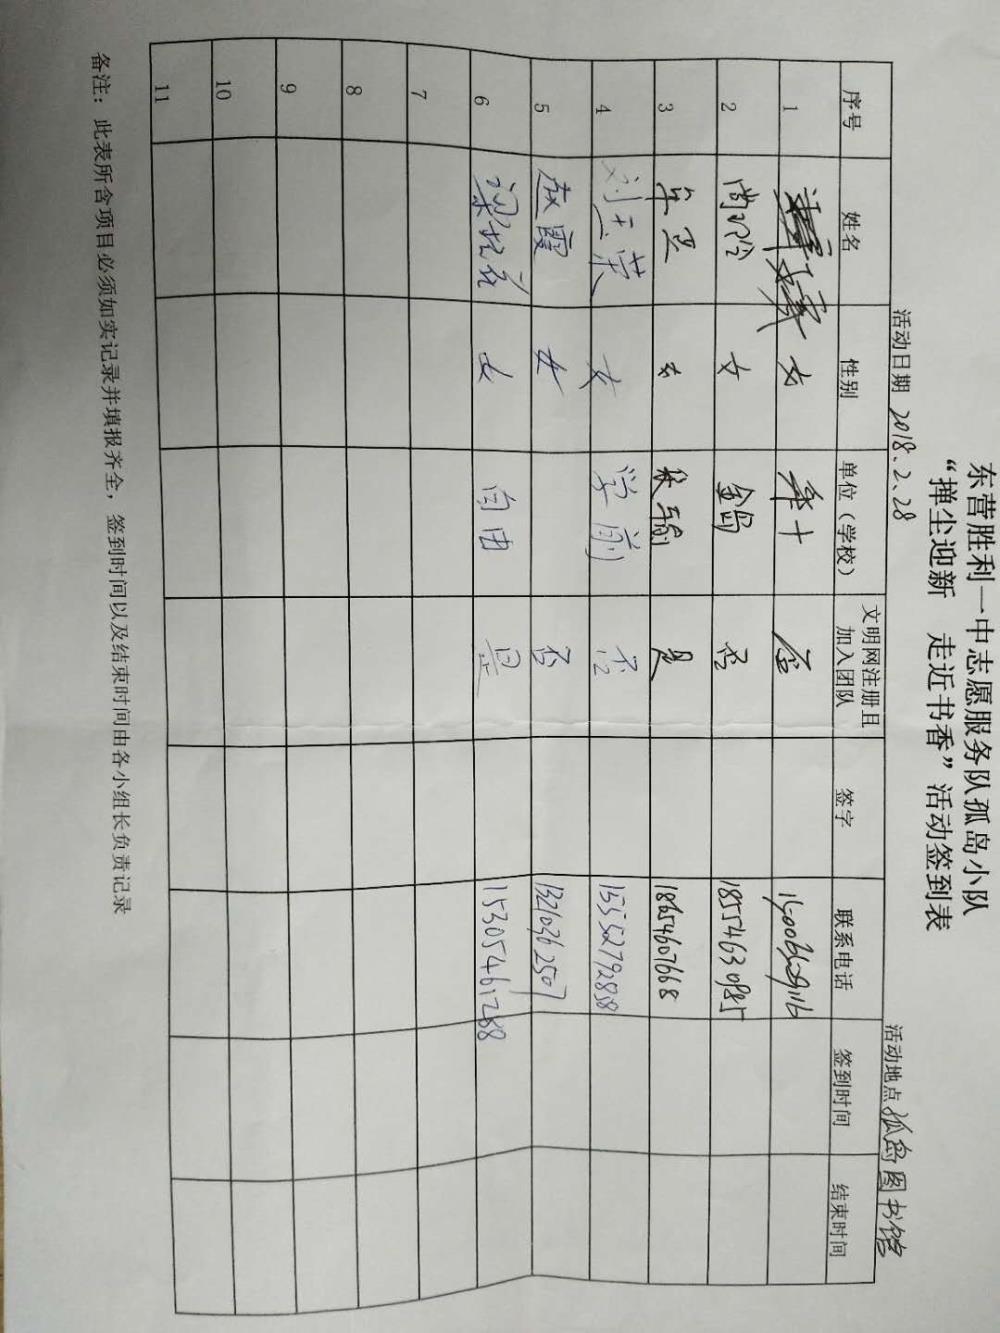 东营胜利一中志愿服务队孤岛小队
“掸尘迎新 走近书香”活动签到表
活动日期 2018.2.28 活动地点 孤岛图书馆
序号 姓名 性别 单位（学校） 文明网注册且加入团队 签字 联系电话 签到时间 结束时间
1 女
2 女 否 18554630985
3 女 是 18654607668
4 刘玉荣 女 学前 否 15552792838
5 赵霞 女 否 13210362507
6 女 自由 是 15305461288
7
8
9
10
11
备注：此表所含项目必须如实记录并填报齐全，签到时间以及结束时间由各小组长负责记录